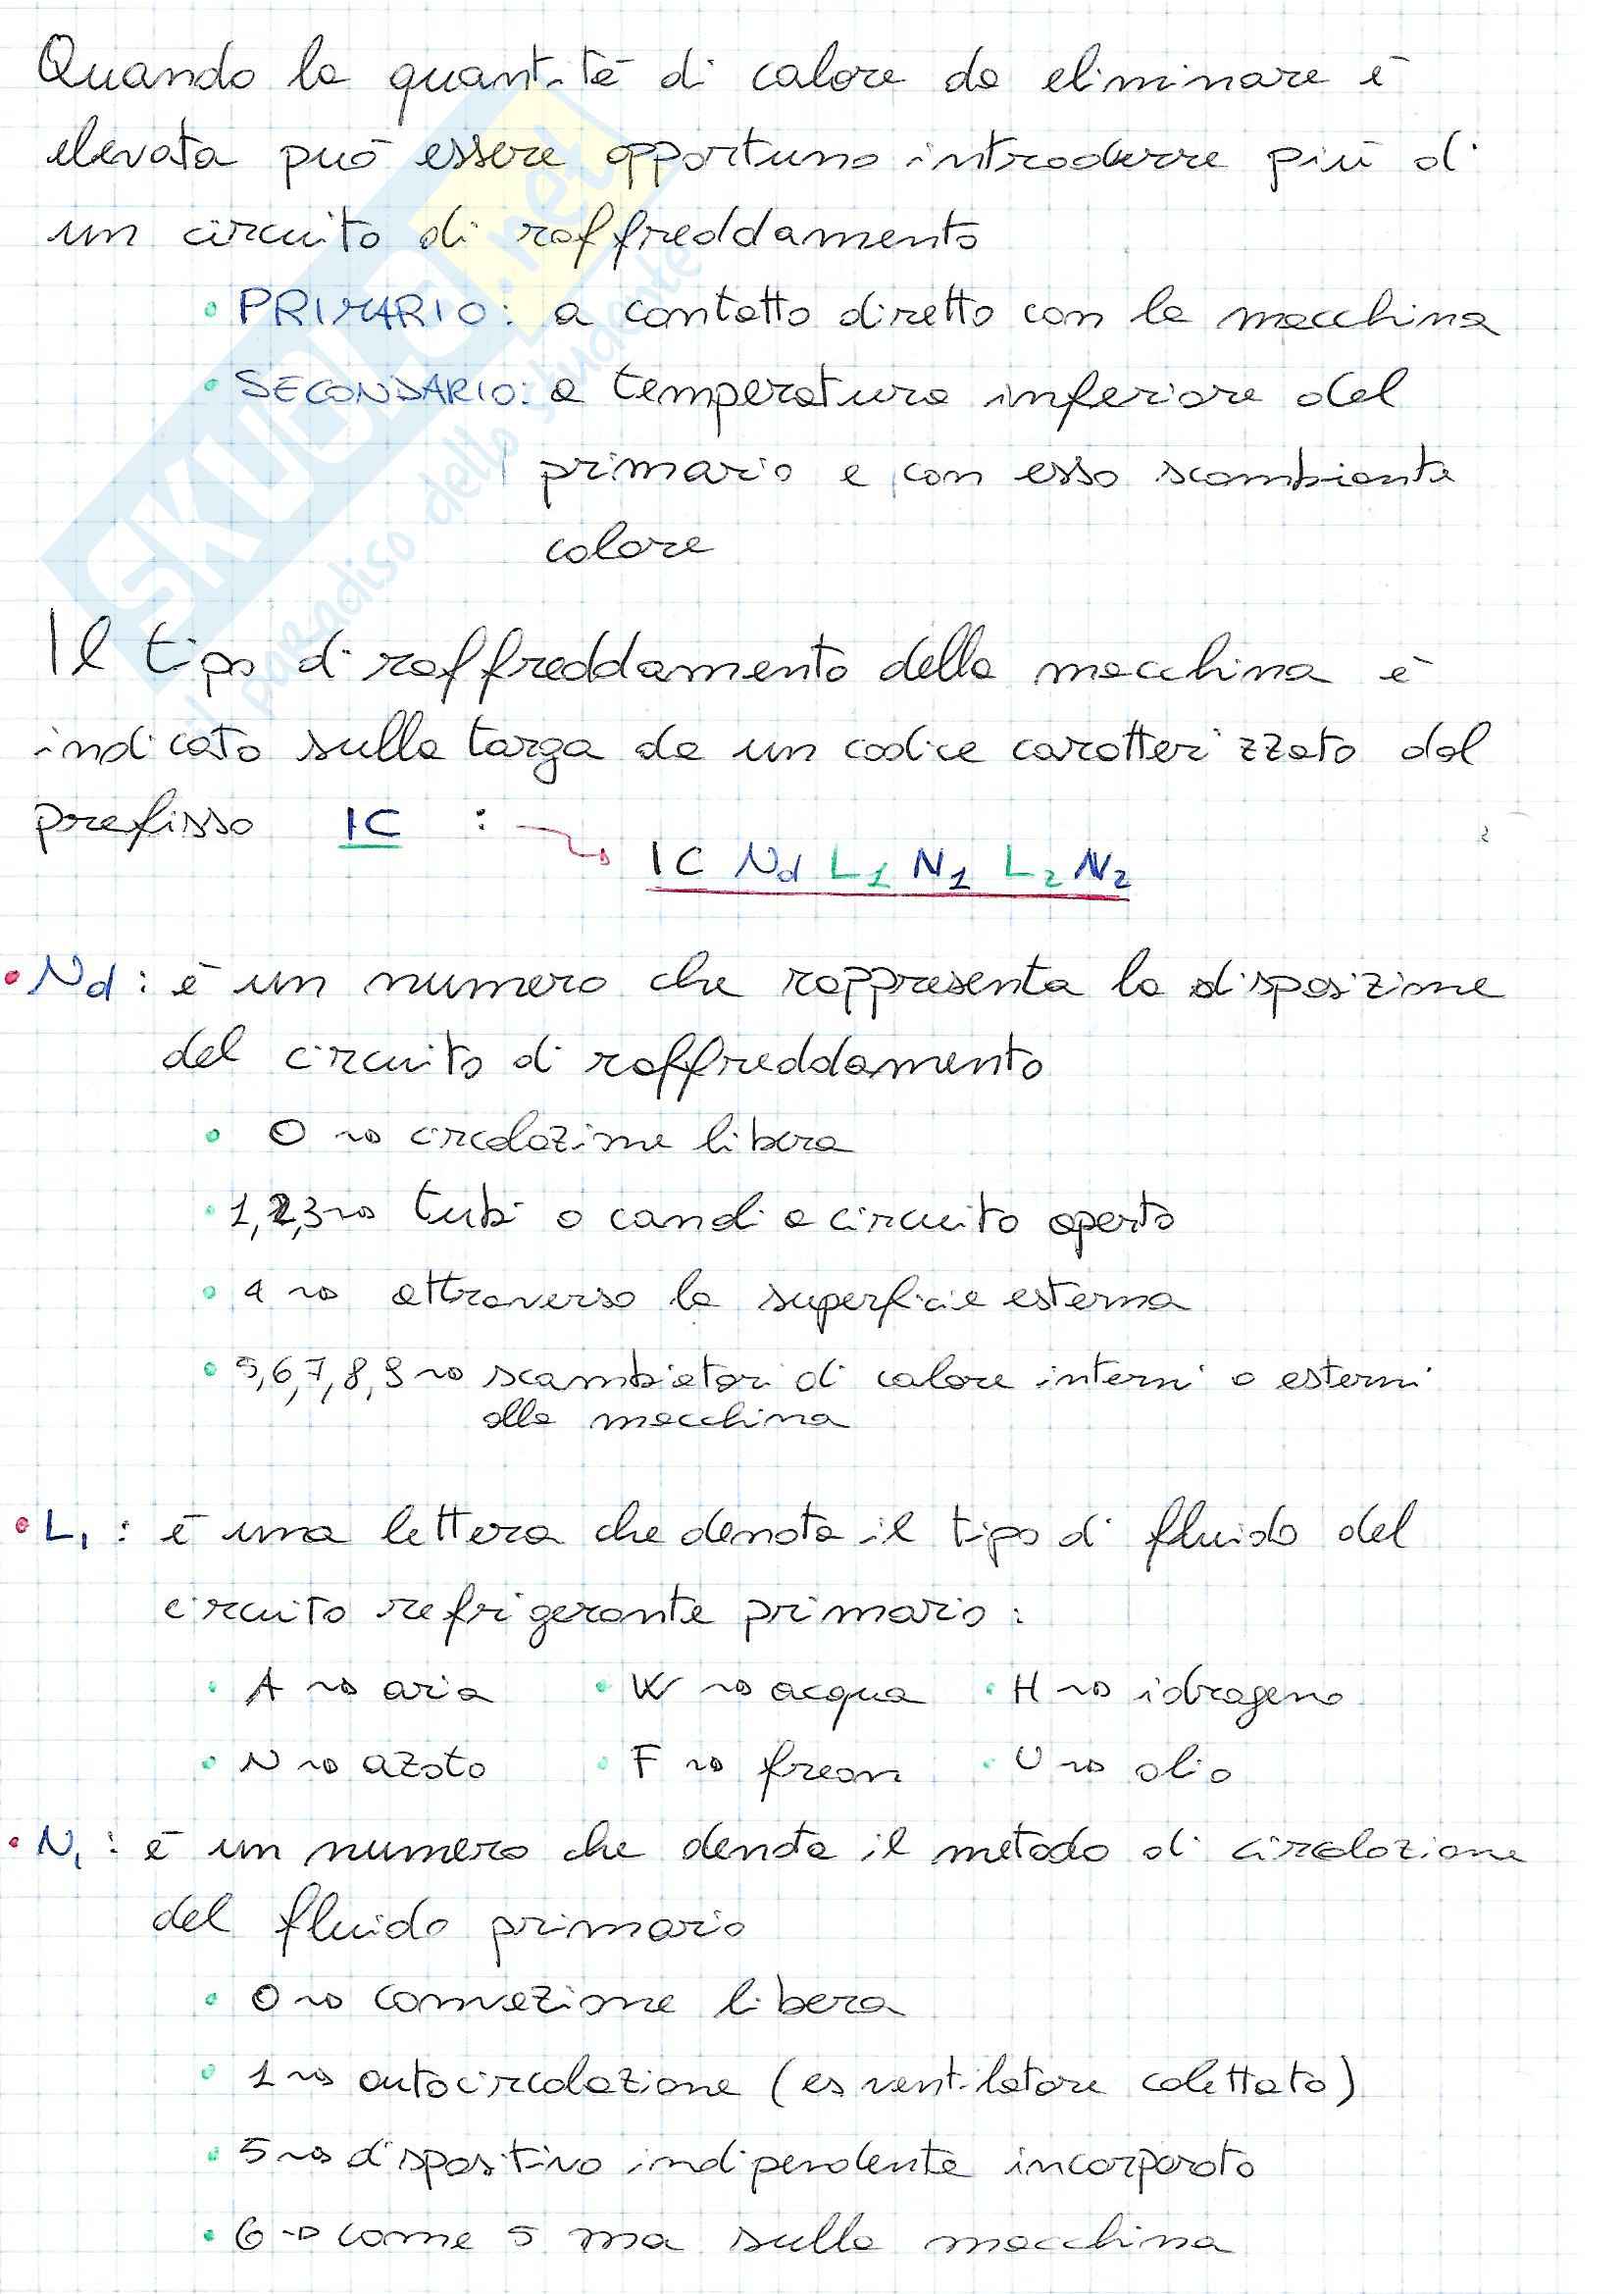 Quando la quantità di calore da eliminare è
elevata può essere opportuno introdurre più di
un circuito di raffreddamento
• PRIMARIO: a contatto diretto con la macchina
• SECONDARIO: a temperatura inferiore del
primario e con esso scambiante
calore
Il tipo di raffreddamento della macchina è
indicato sulla targa da un codice caratterizzato dal
prefisso IC :
IC Nd L1 N1 L2 N2
• Nd : è un numero che rappresenta la disposizione
del circuito di raffreddamento
• 0 → circolazione libera
• 1,2,3 → tubi o canali a circuito aperto
• 4 → attraverso la superficie esterna
• 5,6,7,8,9 → scambiatori di calore interni o esterni
alla macchina
• L1 : è una lettera che denota il tipo di fluido del
circuito refrigerante primario :
• A → aria • W → acqua • H → idrogeno
• N → azoto • F → freon • U → olio
• N1 : è un numero che denota il metodo di circolazione
del fluido primario
• 0 → convezione libera
• 1 → autocircolazione (es ventilatore calettato)
• 5 → dispositivo indipendente incorporato
• 6 → come 5 ma sulla macchina
SKUOLA.net
il paradiso dello studente